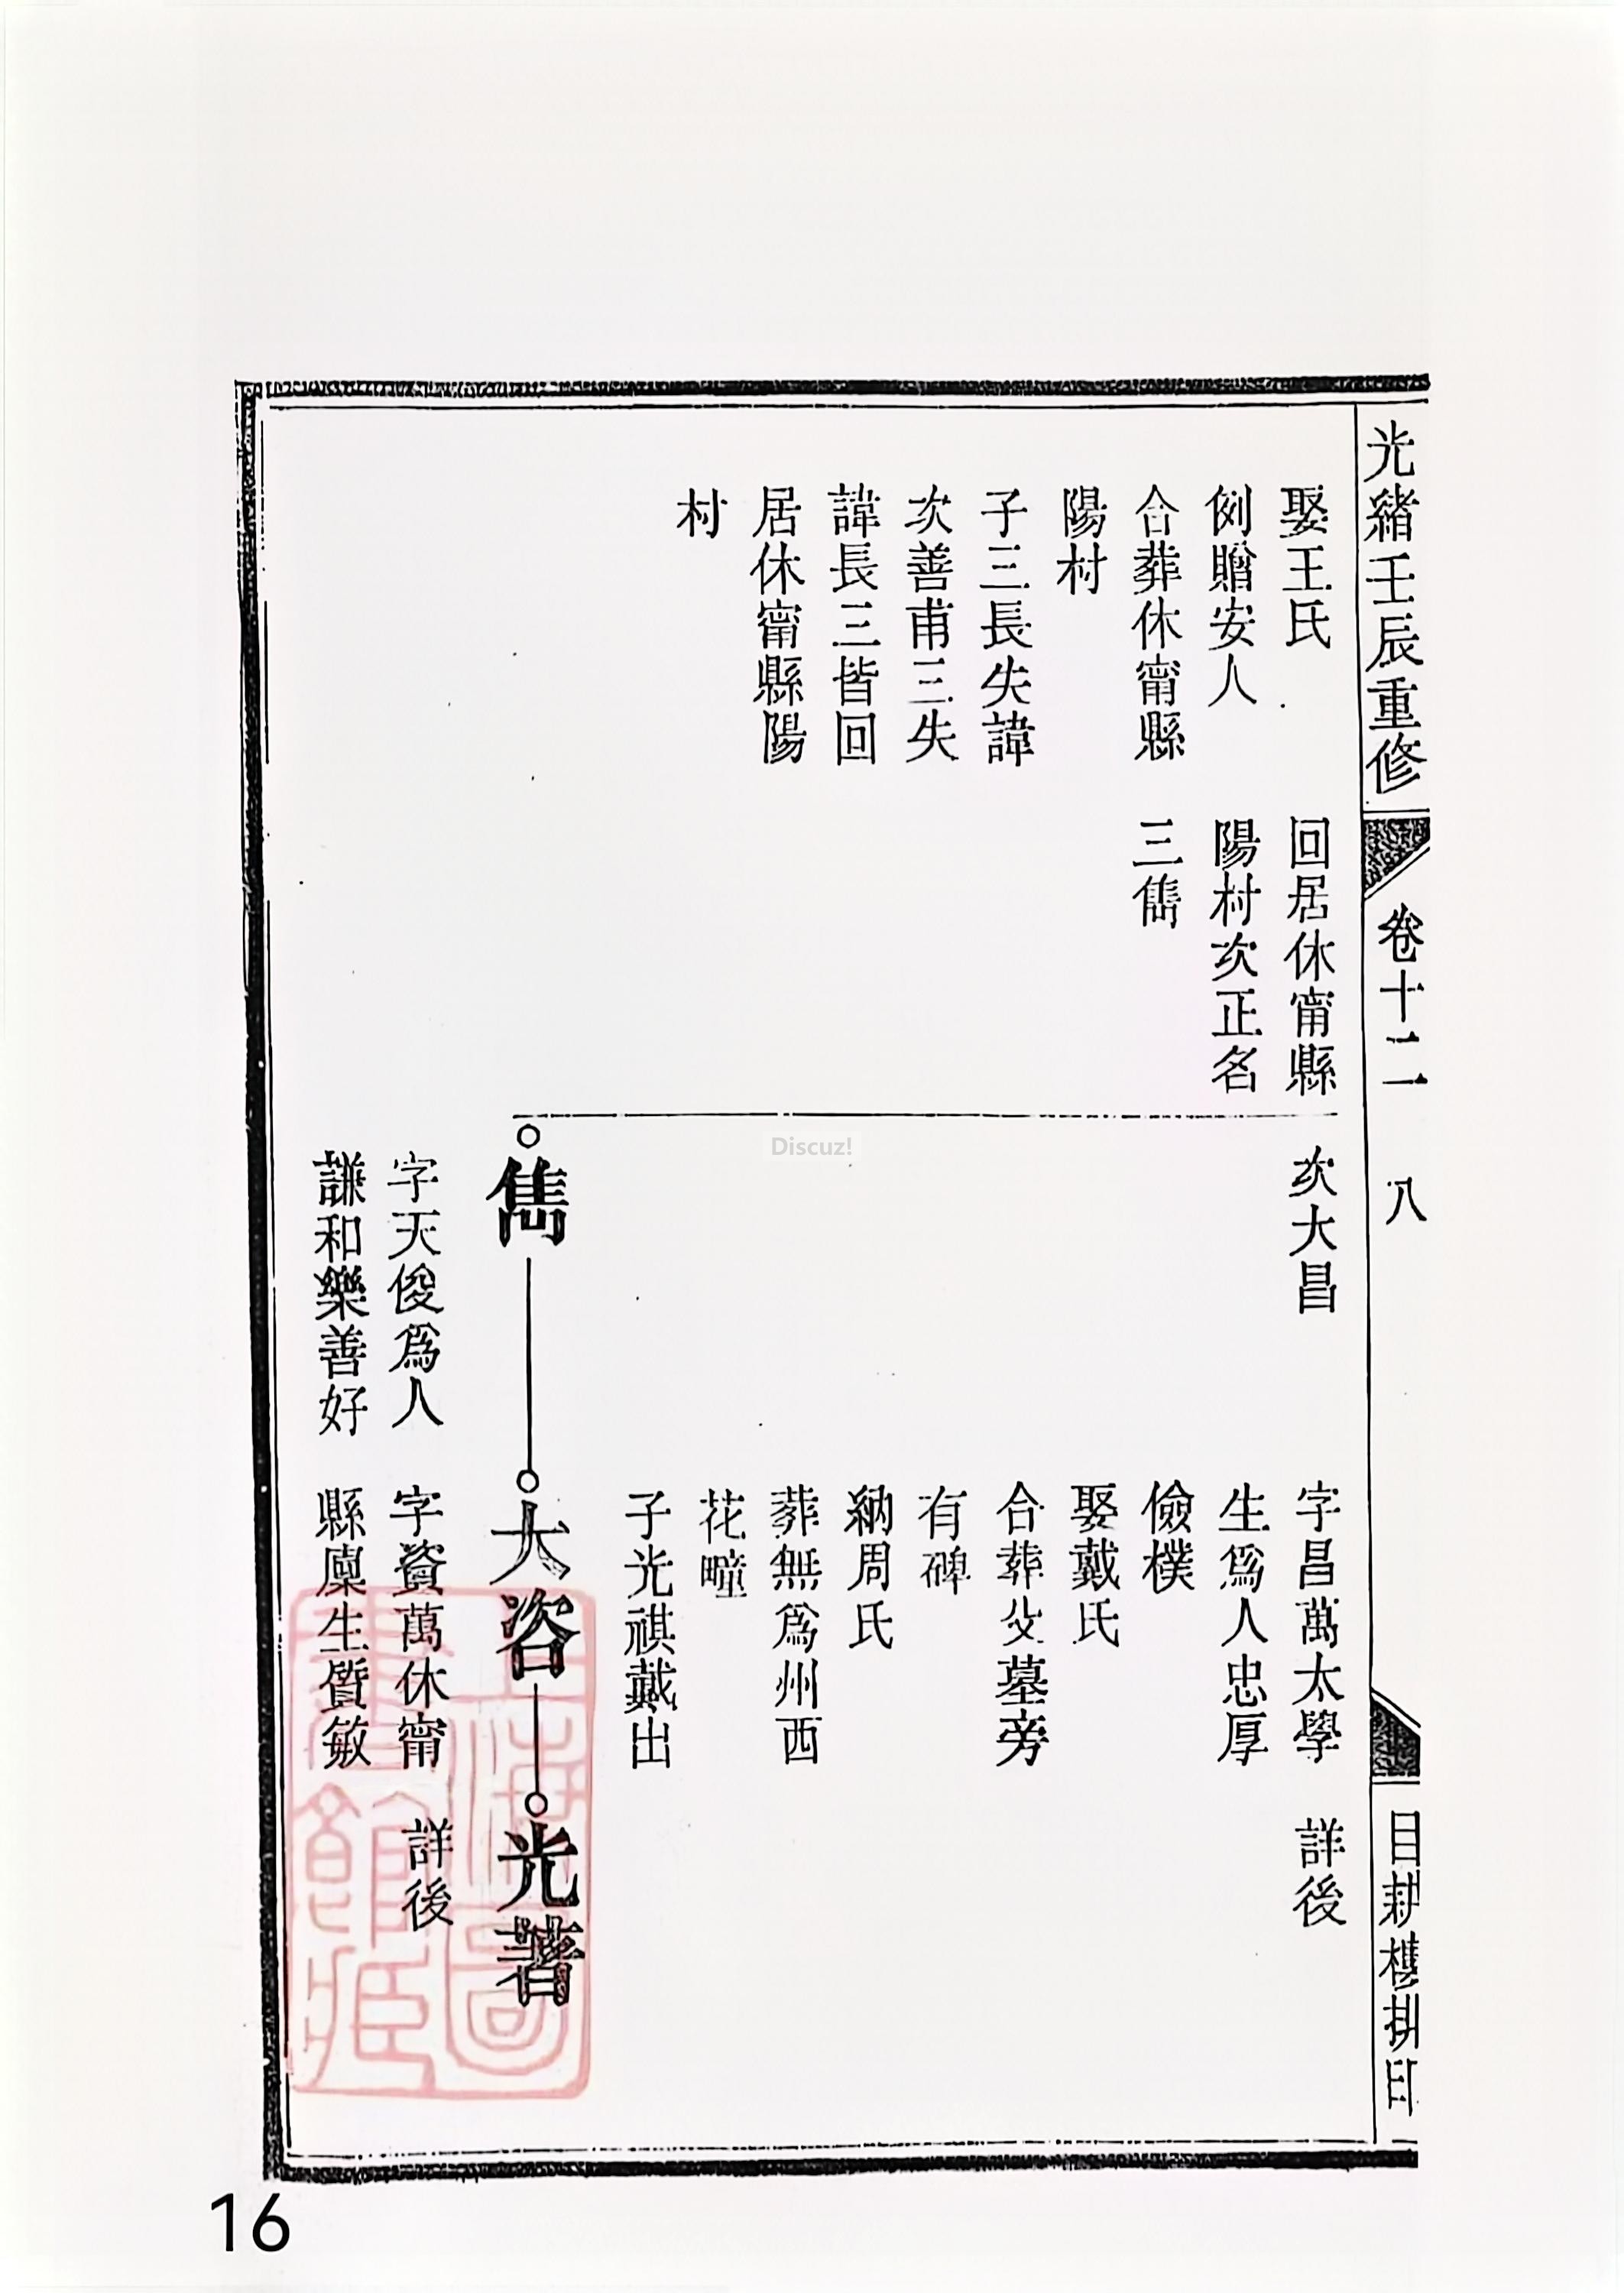 光緒壬辰重修
卷十二
八
目耕樓排印
娶王氏
例贈安人
合葬休甯縣
陽村
子三長失諱
次善甫三失
諱長三皆回
居休甯縣陽
村
回居休甯縣
陽村次正名
三儁
次大昌
儁
字天俊爲人
謙和樂善好
字昌萬太學
生爲人忠厚
儉樸
娶戴氏
合葬父墓旁
有碑
納周氏
葬無爲州西
花疃
子光祺戴出
大咨
字資萬休甯
縣廩生質敏
詳後
光著
詳後
Discuz!
16